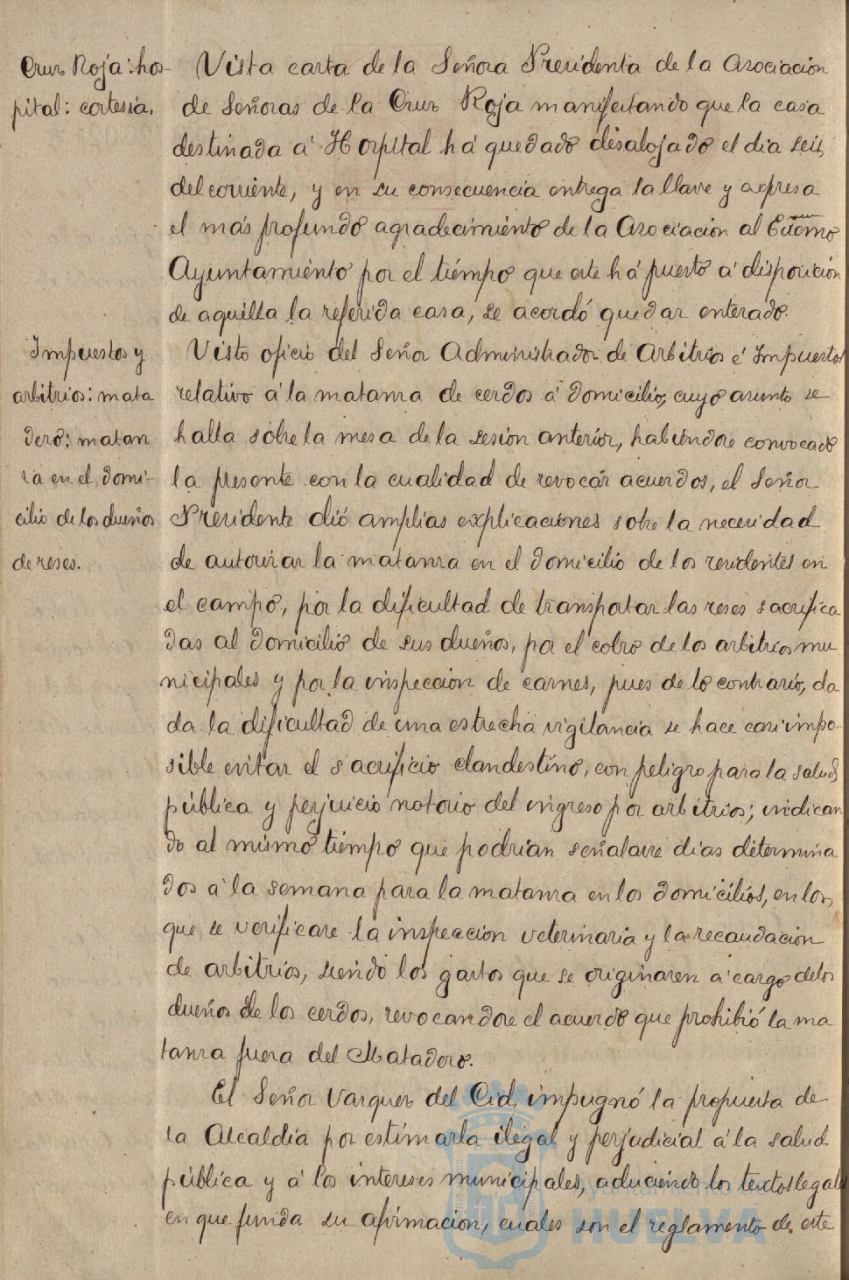 Cruz Roja: hos-
pital: cortesia.
Vista carta de la Señora Presidenta de la Asociación
de Señoras de la Cruz Roja manifestando que la casa
destinada á Hospital há quedado desalojado el dia seis
del corriente, y en su consecuencia entrega la llave y expresa
el más profundo agradecimiento de la Asociación al Excmo
Ayuntamiento por el tiempo que este há puesto á disposición
de aquilla la referida casa, se acordó quedar enterado.
Impuestos y
arbitrios: mata
dero: matan
za en el domi-
cilio de los dueños
de reses.
Visto oficio del Señor Administrador de Arbitrios é Impuestos
relativo á la matanza de cerdos á domicilio, cuyo asunto se
halla sobre la mesa de la sesión anterior, habiéndose convocado
la presente con la cualidad de revocar acuerdos, el Señor
Presidente dió amplias explicaciones sobre la necesidad
de autorizar la matanza en el domicilio de los residentes en
el campo, por la dificultad de transportar las reses sacrifica
das al domicilio de sus dueños, por el cobro de los arbitrios mu
nicipales y por la inspección de carnes, pues de lo contrario, da
da la dificultad de una estrecha vigilancia se hace casi impo-
sible evitar el sacrificio clandestino, con peligro para la salud
pública y perjuicio notorio del ingreso por arbitrios; indican
do al mismo tiempo que podrian señalarse dias determina
dos á la semana para la matanza en los domicilios, en los
que se verificare la inspección veterinaria y la recaudación
de arbitrios, siendo los gastos que se originaren á cargo de los
dueños de los cerdos, revocandose el acuerdo que prohibió la ma
tanza fuera del Matadero.
El Señor Vazquez del Cid, impugnó la propuesta de
la Alcaldía por estimarla ilegal y perjudicial á la salud
pública y á los intereses municipales, aduciendo los textos legales
en que funda su afirmación, cuales son el reglamento de este
Ayuntamiento de
HUELVA